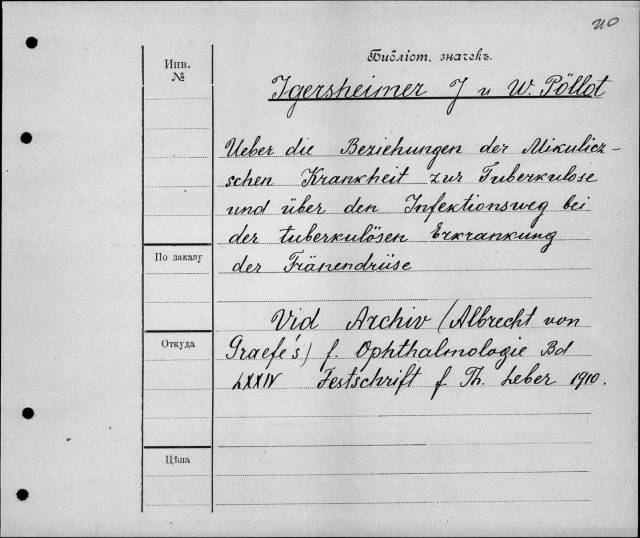 Инв.
№
Библіот. значекъ.
Igersheimer J u W. Pöllot
Ueber die Beziehungen der Mikulicz-
schen Krankheit zur Tuberkulose
und über den Infektionsweg bei
der tuberkulösen Erkrankung
По заказу
der Tränendrüse
Vid Archiv (Albrecht von
Откуда
Graefe's) f. Ophthalmologie Bd
LXXIV Festschrift f Th. Leber 1910.
Цѣна